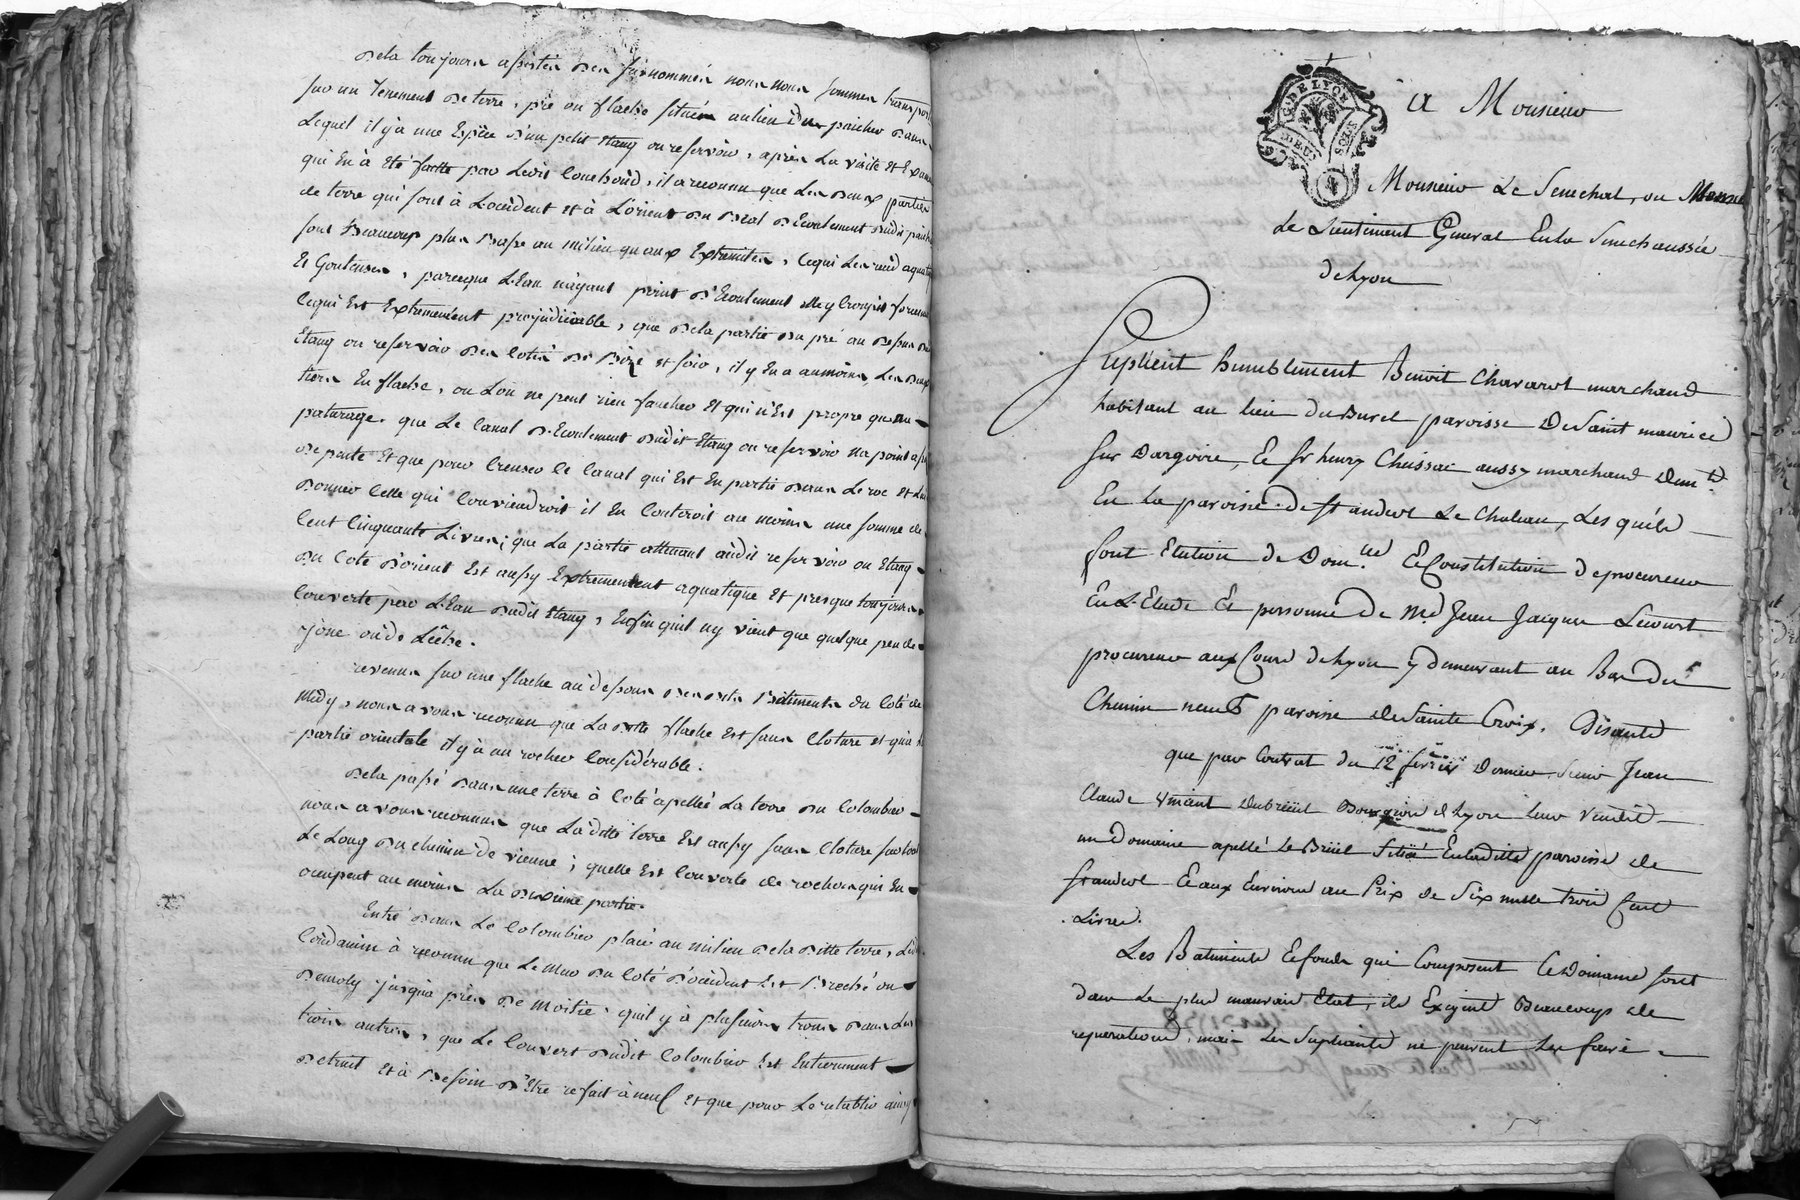 Dela toujours assistés des susnommés nous nous sommes transport
sur un tenement de terre, pré ou flache située au lieu du paicher dans
Lequel il y a une Espèce d'un petit Etang ou reservoir, après La visite et Exam
qui En à Eté faitte par Loüis , il a reconnu que Les deux parties
de terre qui sont à L'occident et à L'orient du Beal d'Ecoulement dudit
sont Beaucoup plus Basse au milieu qu'aux Extremites, Cequi Les rend aquatiq
Et Gouteuses, parceque L'Eau n'ayant point d'Ecoulement Elle y Croupit
Cequi Est Extremement prejudiciable, que dela partie du pré au dessus du
Etang ou reservoir des Cotés de Bize et soir, il y En a aumoins Les deux
tiers En flache, ou L'on ne peut rien faucher Et qui n'Est propre quau
paturage. que Le Canal d'Ecoulement dudit Etang ou reservoir na point asse
de pente Et que pour Creuser le Canal qui Est En partie dans Le roc et Lui
donner Celle qui Conviendroit il En Couteroit au moins une somme de
Cent Cinquante Livres; que La partie attenant audit reservoir ou Etang
du Coté d'orient Est aussy Extremement aquatique Et presque toujours
Couverte par L'Eau dudit Etang, Enfin quil ny vient que quelque peu de
jonc ou de Lêche.
revenus sur une flache au dessous desdits Batiments du Coté de
Midy, nous avons reconnu que La ditte flache Est sans Cloture et qu'a s
partie orientale il y à un rocher Considérable.
Dela passé dans une terre à Coté apellée La terre du Colombier
nous avons reconnus que La ditte terre Est aussy sans Cloture sur tout
Le Long du chemin de vienne; quelle Est Couverte de rochers qui En
occupent au moins La dixième partie.
Entré dans Le Colombier placé au milieu dela ditte terre, Led.
Coudamin à reconnu que Le Mur du Coté d'occident Est Breché ou
demoly jusqua près de moitié. quil y à plusieurs trous dans Les
trois autres, que Le Couvert dudit Colombier Est Entierement
detruit Et à Besoin d'Etre refait à neuf Et que pour Le retablir ainsy
G. DE LYON
DEUX
SOLS
A Monsieur
Monsieur Le Senechal, ou Monsieur
Le Lieutenant General En la Senechaussée
de Lyon
Suplient humblement Benoit Chavarot marchand
habitant au lieu du Buret paroisse De Saint maurice
sur Dargoire, Et sr henry Chussac aussy marchand Demt
En La paroisse de St andeol Le Chateau, Les quels
font Election de Dom.lle Et Constitution de procureur
En L'Etude Et personne de Me Jean Jacques Lecourt
procureur aux Cours de Lyon y demeurant au Bas du
Chemin neuf paroisse de Sainte Croix. Disants
que par Contrat du 12 fevrier Dernier, Sieur Jean
Claude Vincent Dubreüil Bourgeois de Lyon Leur Vendit
un Domaine apellé Le Brüil Situé En ladite paroisse de
St andeol Et aux Environs au Prix de Six mille trois Cent
Livres.
Les Batiments Et fonds qui Composent Ce Domaine sont
dans Le plus mauvais Etat, ils Exigent Beaucoup de
reparations, mais Les Supliants ne peuvent Les faire